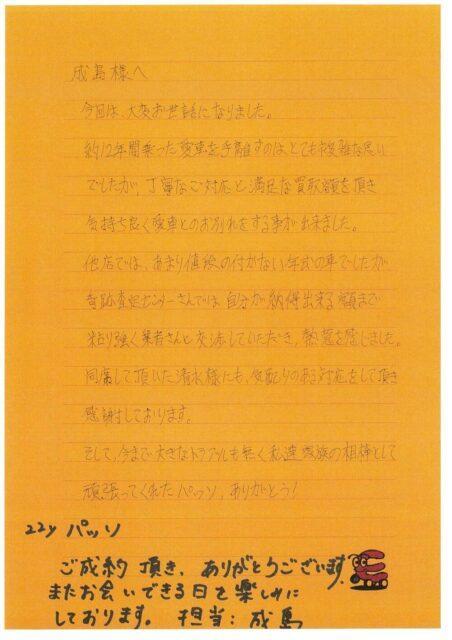 成島様へ
今回は、大変お世話になりました。
約12年間乗った愛車を手離すのは、とても複雑な思い
でしたが、丁寧なご対応と満足な買取額を頂き
気持ち良く愛車とのお別れをする事が出来ました。
他店では、あまり値段の付かない年式の車でしたが
奇跡査定センターさんでは、自分が納得出来る額まで
粘り強く業者さんと交渉していただき、熱意を感じました。
同席して頂いた清水様にも、気配りのある対応をして頂き
感謝しております。
そして、今まで大きなトラブルも無く私達家族の相棒として
頑張ってくれたパッソ、ありがとう!
22y パッソ
ご成約頂き、ありがとうございます。
またお会いできる日を楽しみに
しております。 担当:成島